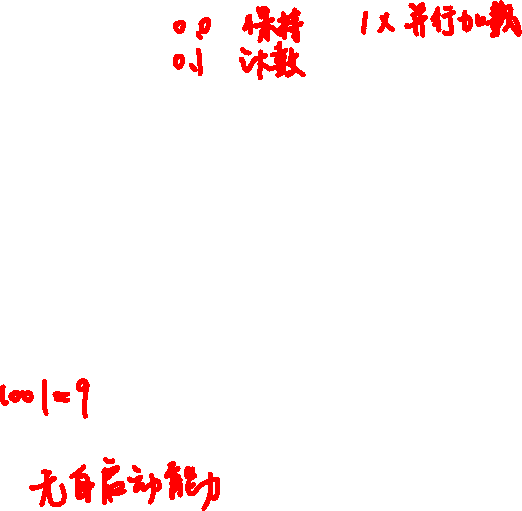 00 保持 1X 并行加载
01 计数
1001=9
无自启动能力